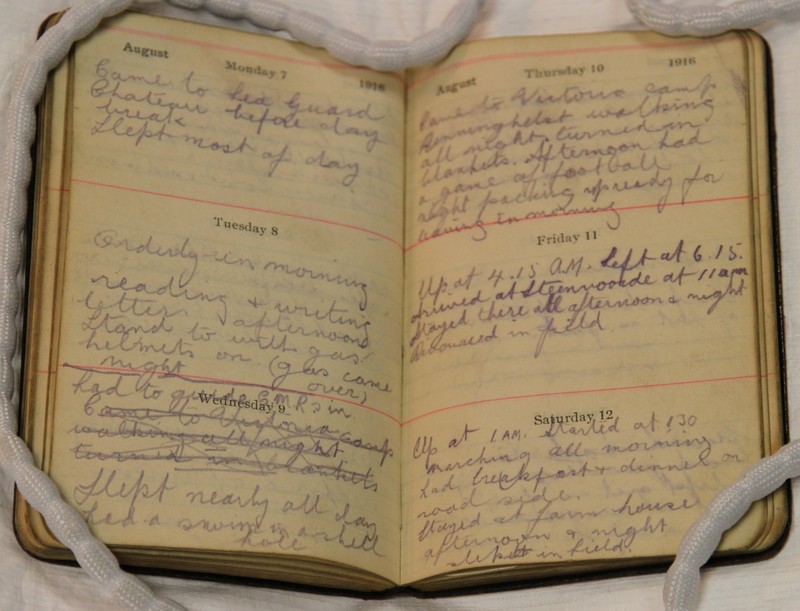 August Monday 7 1916
Came to Red Guard
Chateau before day
break
Slept most of day
Tuesday 8
Orderly in morning
reading & writing
letters afternoon
Stand to with gas
helmets on (gas came
night over)
had to guide C.M.R.s in.
Wednesday 9
Came to Victoria camp
walking all night
turned in blankets
Slept nearly all day
had a swim in a shell
hole
August Thursday 10 1916
Came to Victoria camp
Renninghelst walking
all night, turned in
blankets. Afternoon had
a game of football
night packing up ready for
leaving in morning
Friday 11
Up at 4.15 A.M. Left at 6.15.
arrived at Steenvoorde at 11 am
Stayed there all afternoon & night
Bivouaced in field
Saturday 12
Up at 1 AM. Started at
marching all morning
had breakfast & dinner on
road side.
Stayed at farm house
afternoon & night
slept in field.